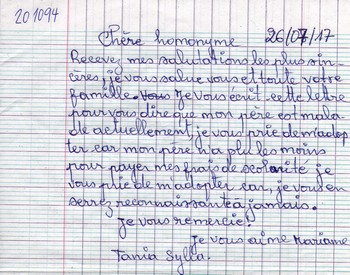 201094
Chère homonyme 26/07/17
Recevez mes salutations les plus sin-
cères, je vous salue vous et toute votre
famille. Je vous écrit cette lettre
pour vous dire que mon père est mala-
de actuellement, je vous prie de m'adop-
ter car mon père n'a plus les moins
pour payer mes frais de scolarité je
vous prie de m'adopter car, je vous en
serrez reconnaissante à jamais.
Je vous remercie!
Je vous aime Mariame
Tania Sylla.